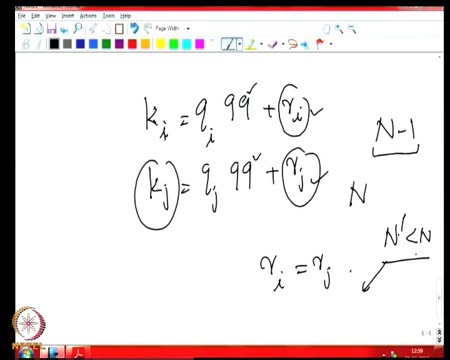 File Edit View Insert Actions Tools Help
Page Width
k_i = q_i 99 + r_i
N-1
k_j = q_j 99 + r_j
N
N' < N
r_i = r_j .
12:59